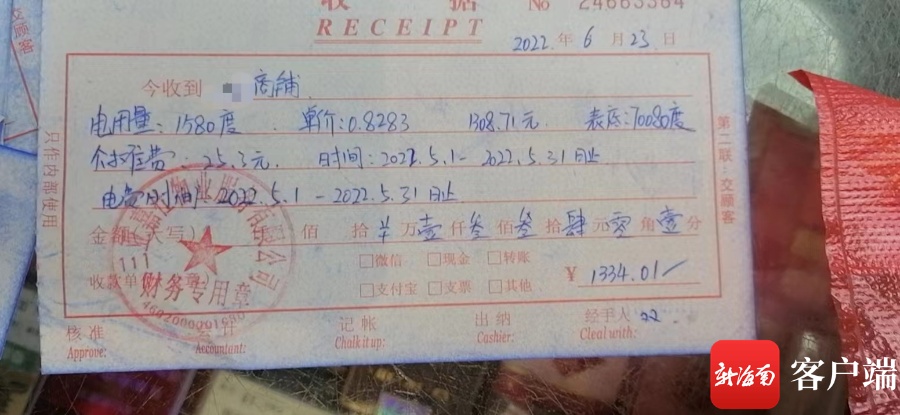 收 据 No 24663384
RECEIPT
2022 年 6 月 23 日
今收到 商铺
电用量：1580度 单价：0.8283 1308.71元 表底：70080度
25.3元 时间：2022.5.1－2022.5.31日止
电费时间：2022.5.1－2022.5.31日止
金额(大写) 佰 拾 万 壹 仟 叁 佰 叁 拾 肆 元 零 角 壹 分
微信 现金 转账
收款单位 ￥ 1334.01
支付宝 支票 其他
核准 会计 记帐 出纳 经手人
Approve: Accountant: Chalk it up: Cashier: Cleal with:
只作内部使用
第二联：交顾客
交顾客
111
公司
财务专用章
新海南 客户端